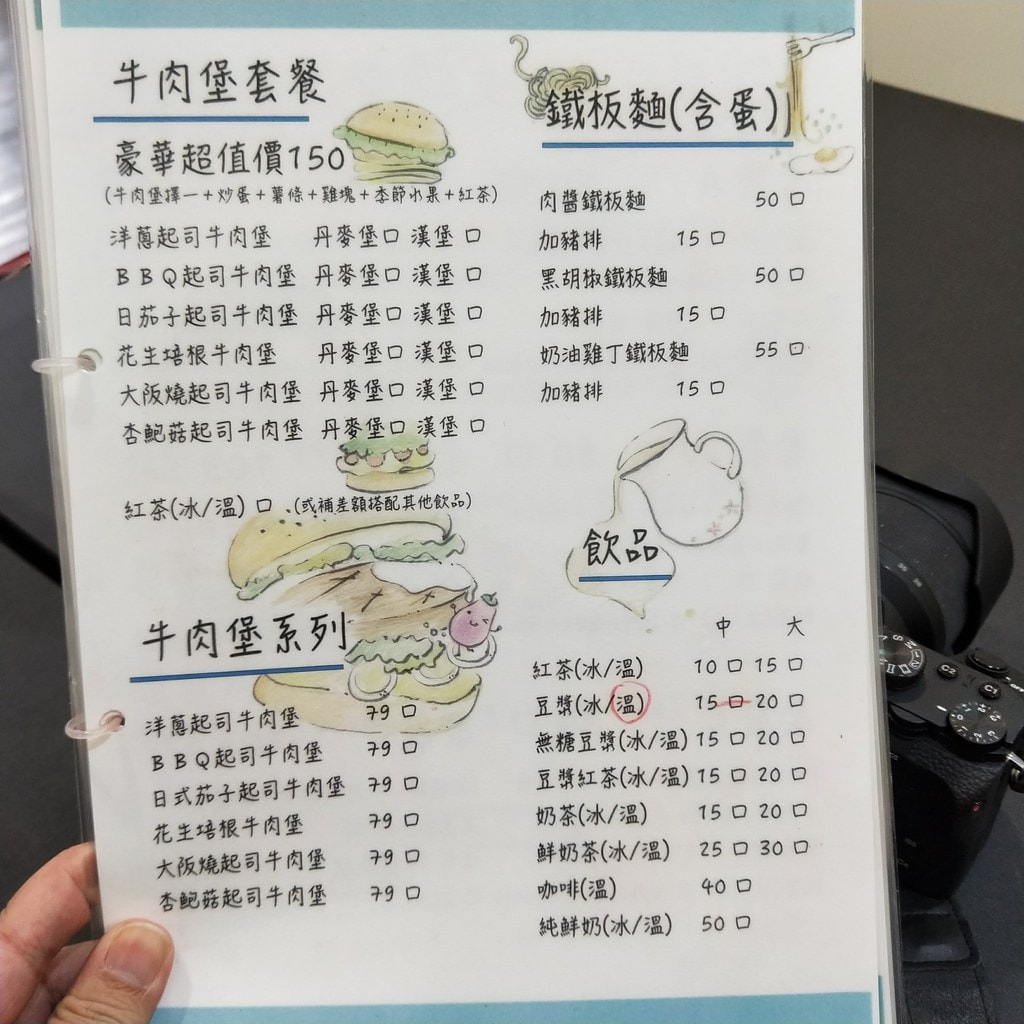 牛肉堡套餐
豪華超值價150
(牛肉堡擇一+炒蛋+薯條+雞塊+季節水果+紅茶)
洋蔥起司牛肉堡 丹麥堡口 漢堡口
BBQ起司牛肉堡 丹麥堡口 漢堡口
日茄子起司牛肉堡 丹麥堡口 漢堡口
花生培根牛肉堡 丹麥堡口 漢堡口
大阪燒起司牛肉堡 丹麥堡口 漢堡口
杏鮑菇起司牛肉堡 丹麥堡口 漢堡口
紅茶(冰/溫)口 (或補差額搭配其他飲品)
牛肉堡系列
洋蔥起司牛肉堡 79口
BBQ起司牛肉堡 79口
日式茄子起司牛肉堡 79口
花生培根牛肉堡 79口
大阪燒起司牛肉堡 79口
杏鮑菇起司牛肉堡 79口
鐵板麵(含蛋)
肉醬鐵板麵 50口
加豬排 15口
黑胡椒鐵板麵 50口
加豬排 15口
奶油雞丁鐵板麵 55口
加豬排 15口
飲品
中 大
紅茶(冰/溫) 10口 15口
豆漿(冰/溫) 15口 20口
無糖豆漿(冰/溫) 15口 20口
豆漿紅茶(冰/溫) 15口 20口
奶茶(冰/溫) 15口 20口
鮮奶茶(冰/溫) 25口 30口
咖啡(溫) 40口
純鮮奶(冰/溫) 50口
C2
C1